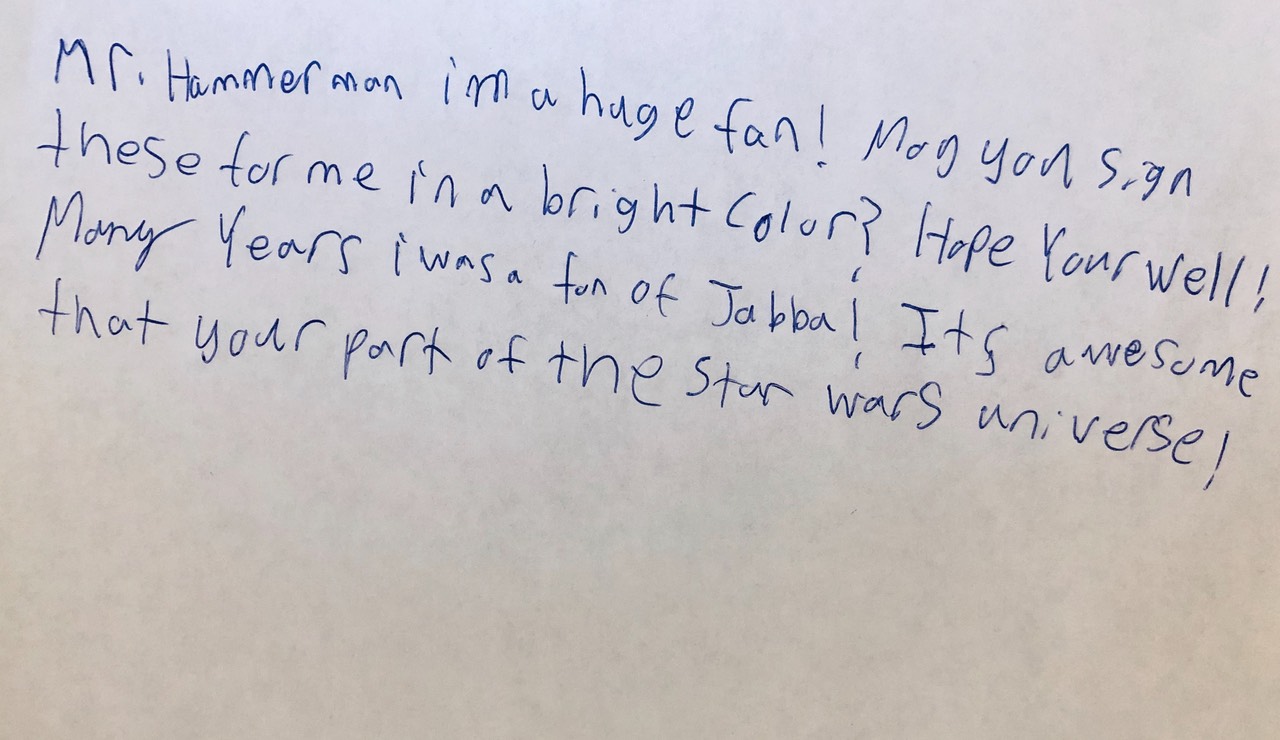 Mr. Hammerman im a huge fan! May you sign
these for me in a bright Color? Hope Your well!
Many Years i was a fan of Jabba! Its awesome
that your part of the Star wars universe!